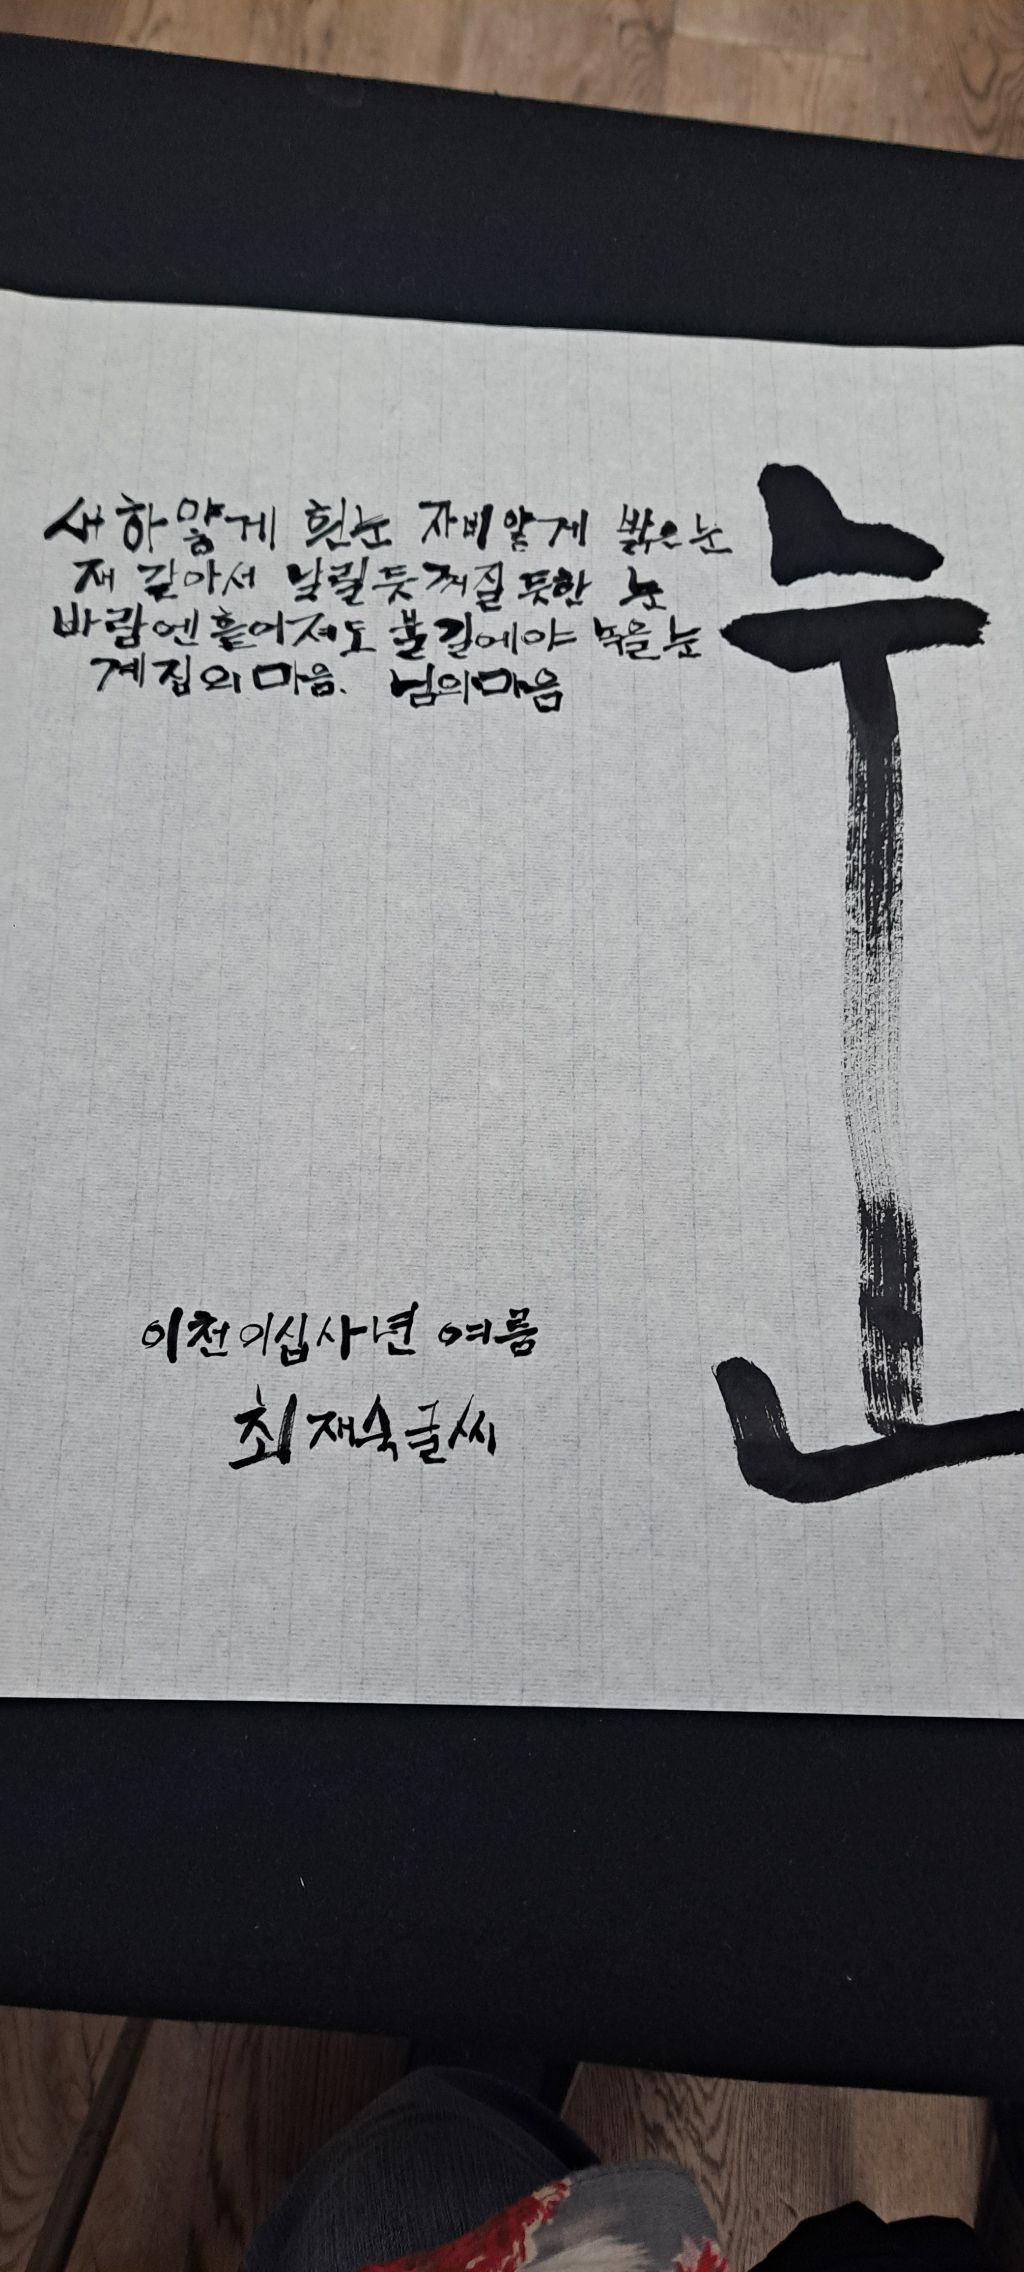 새하얗게 흰눈 가비얍게 밟은눈
재 같아서 날릴듯 꺼질듯한 눈
바람엔 흩어져도 불길에야 녹을눈
계집의 마음. 님의마음
눈
이천이십사년 여름
최재숙글씨